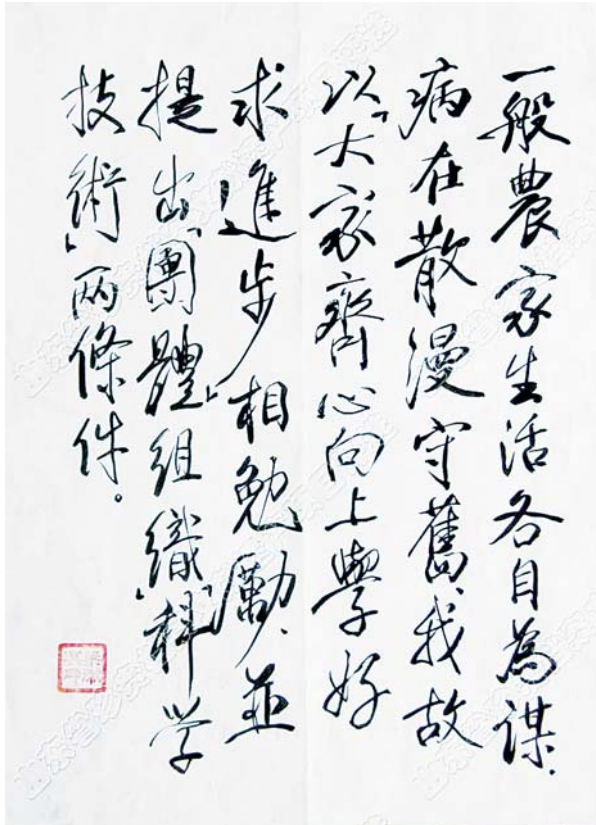 一般農家生活各自為謀、
病在散漫守舊、我故
以「大家齊心向上學好
求進步」相勉勵、並
提出「團體組織」「科学
技術」两條件。